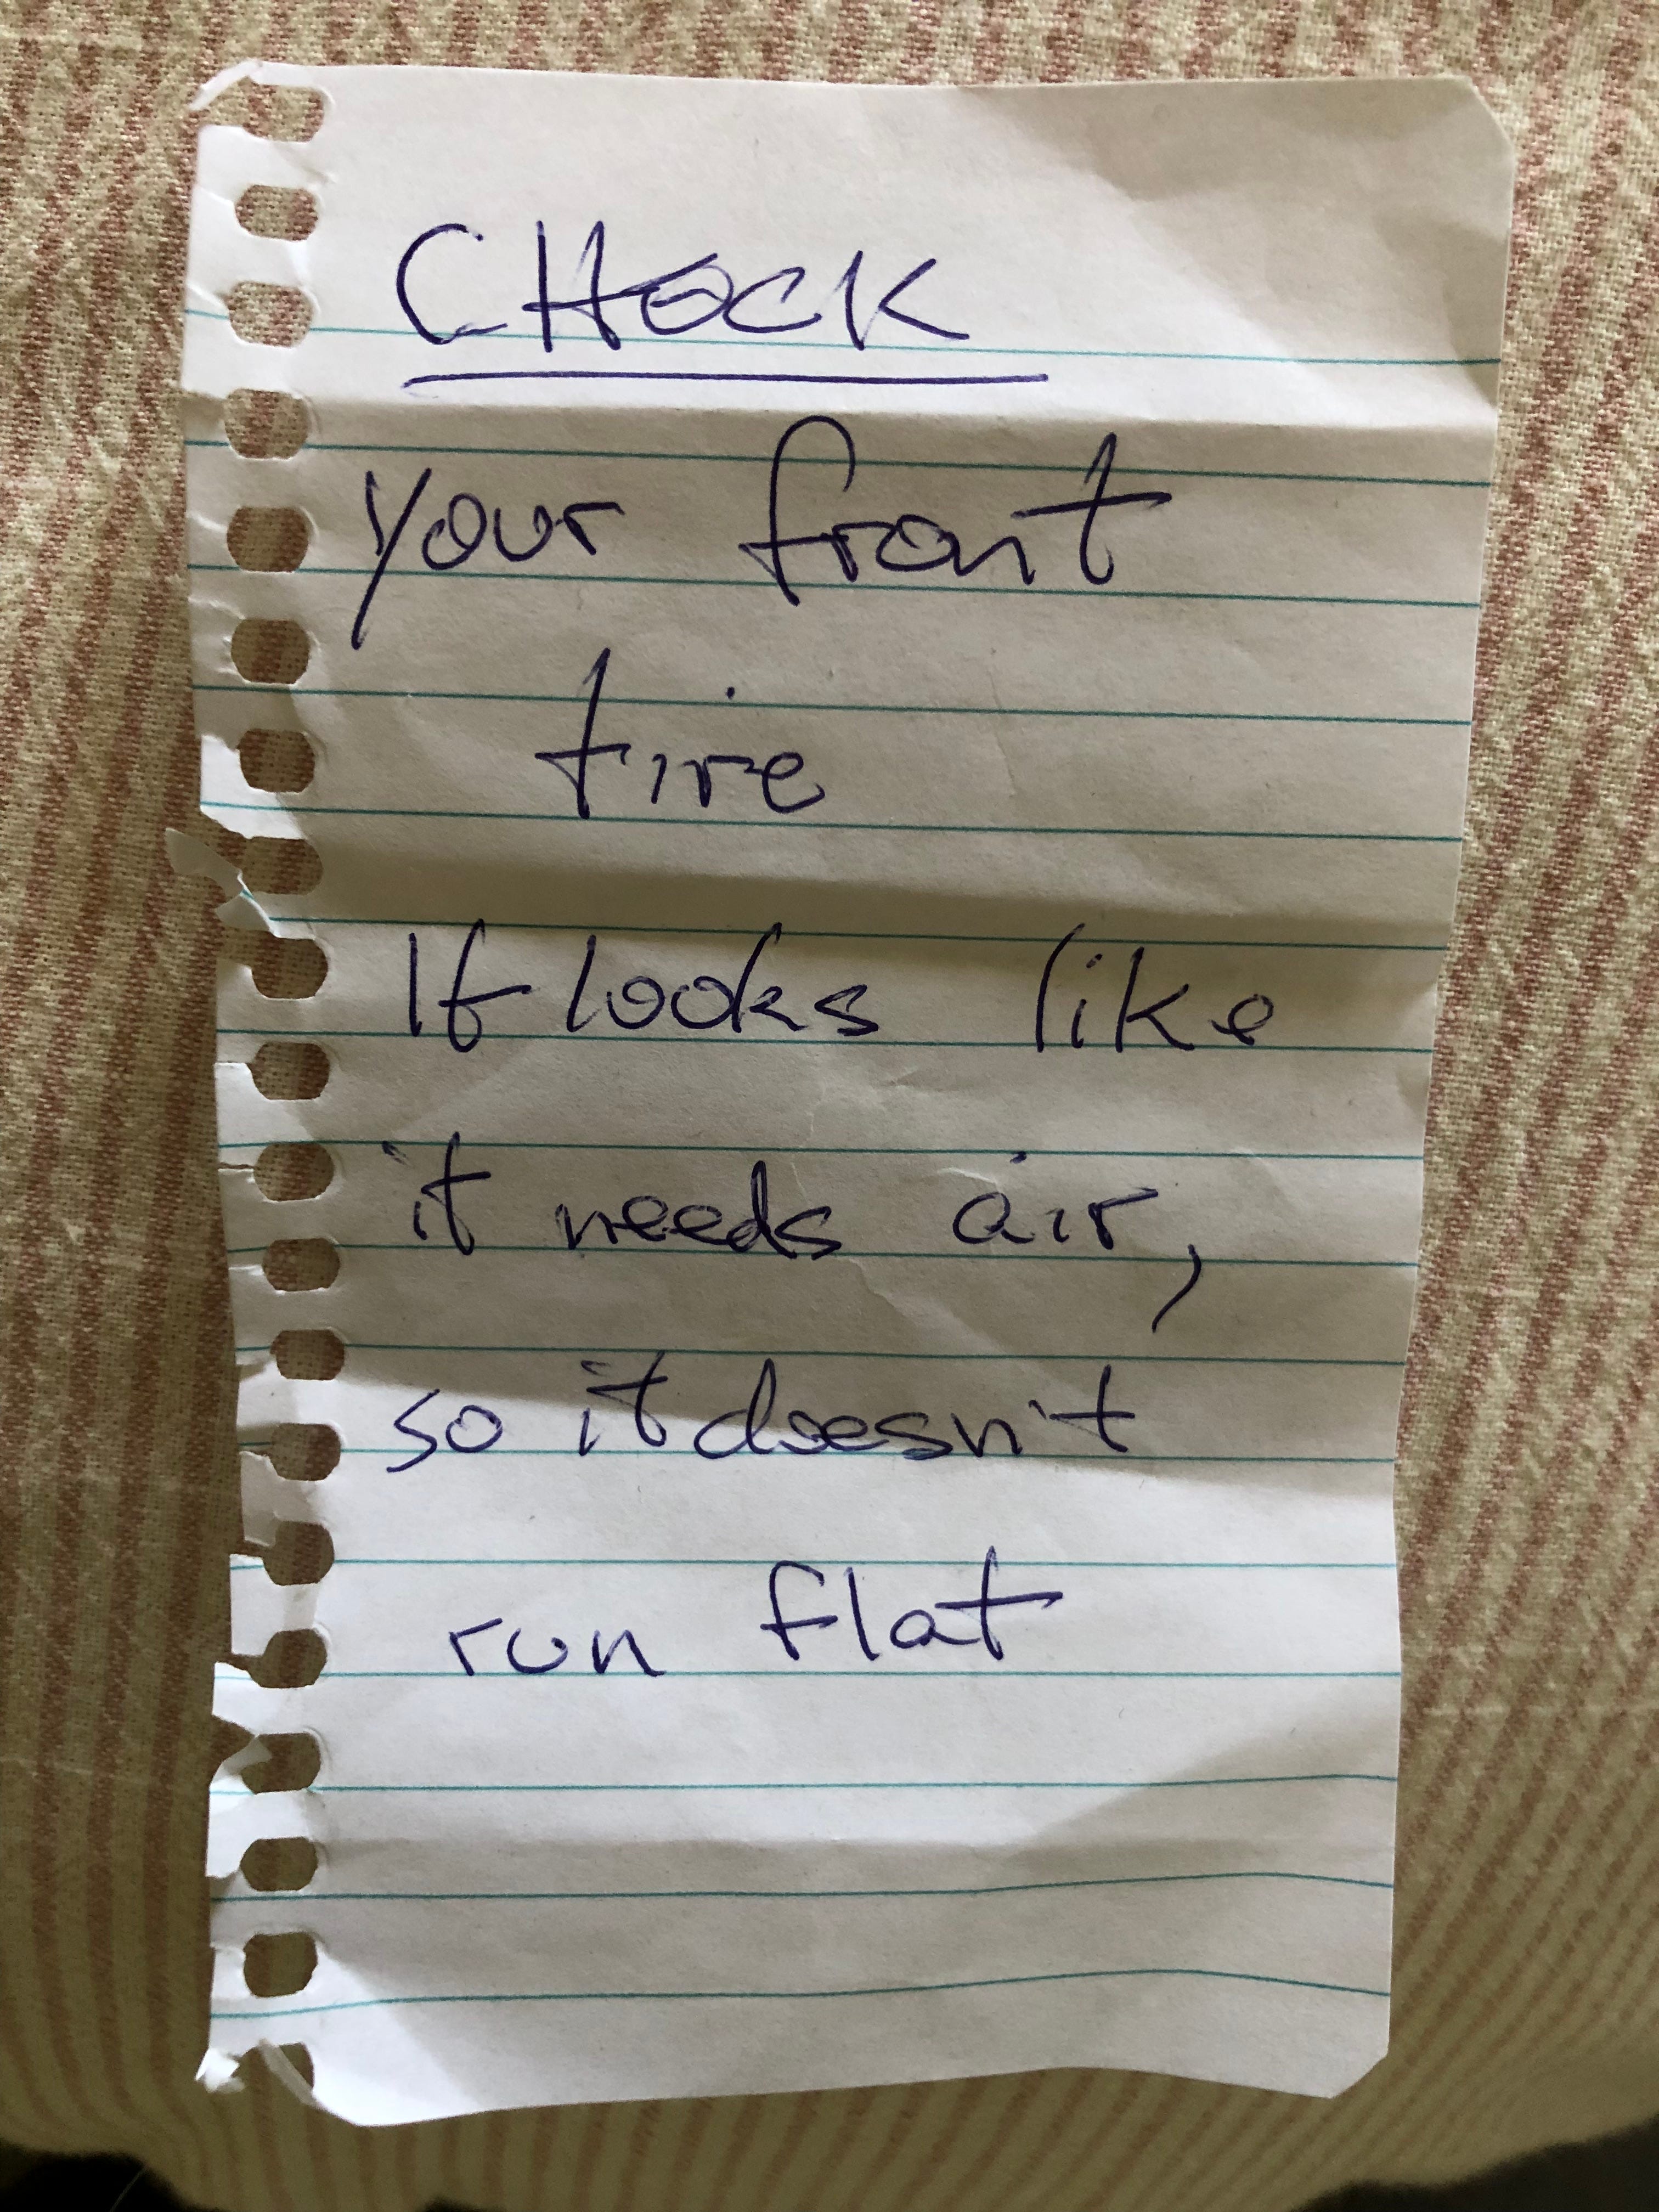 CHECK
your front
tire
It looks like
it needs air,
so it doesn't
run flat